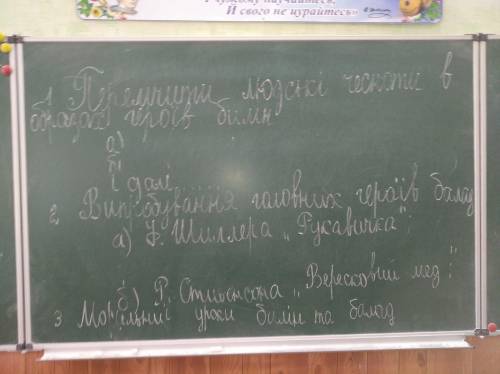 чужому научайтесь,
И свого не цурайтесь»
1 Перелічити людські чесноти в
образах героїв билин
а)
б)
і далі
2 Випробування головних героїв балад
а) Ф. Шиллера „Рукавичка";
б) Р. Стивенсона „Вересковий мед";
3 Моральні уроки билин та балад